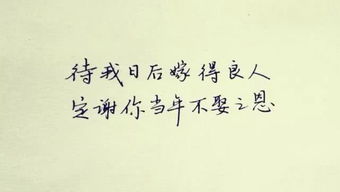 待我日后嫁得良人
定谢你当年不娶之恩